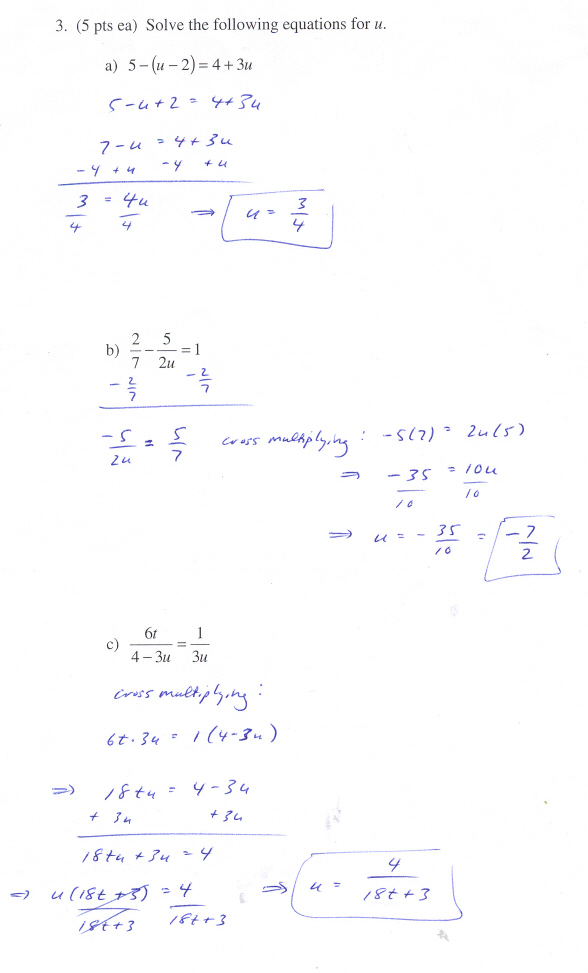 3. (5 pts ea) Solve the following equations for u.
a) 5 – (u – 2) = 4 + 3u
5 - u + 2 = 4 + 3u
7 - u = 4 + 3u
- 4 + u   - 4 + u
3/4 = 4u/4 ⇒ u = 3/4
b) 2/7 – 5/2u = 1
- 2/7   - 2/7
-5/2u = 5/7   cross multiplying: -5(7) = 2u(5)
⇒ -35/10 = 10u/10
⇒ u = - 35/10 = -7/2
c) 6t/(4 – 3u) = 1/3u
cross multiplying:
6t · 3u = 1(4-3u)
⇒ 18tu = 4 - 3u
+ 3u   + 3u
18tu + 3u = 4
⇒ u(18t + 3)/(18t + 3) = 4/(18t + 3) ⇒ u = 4/(18t + 3)